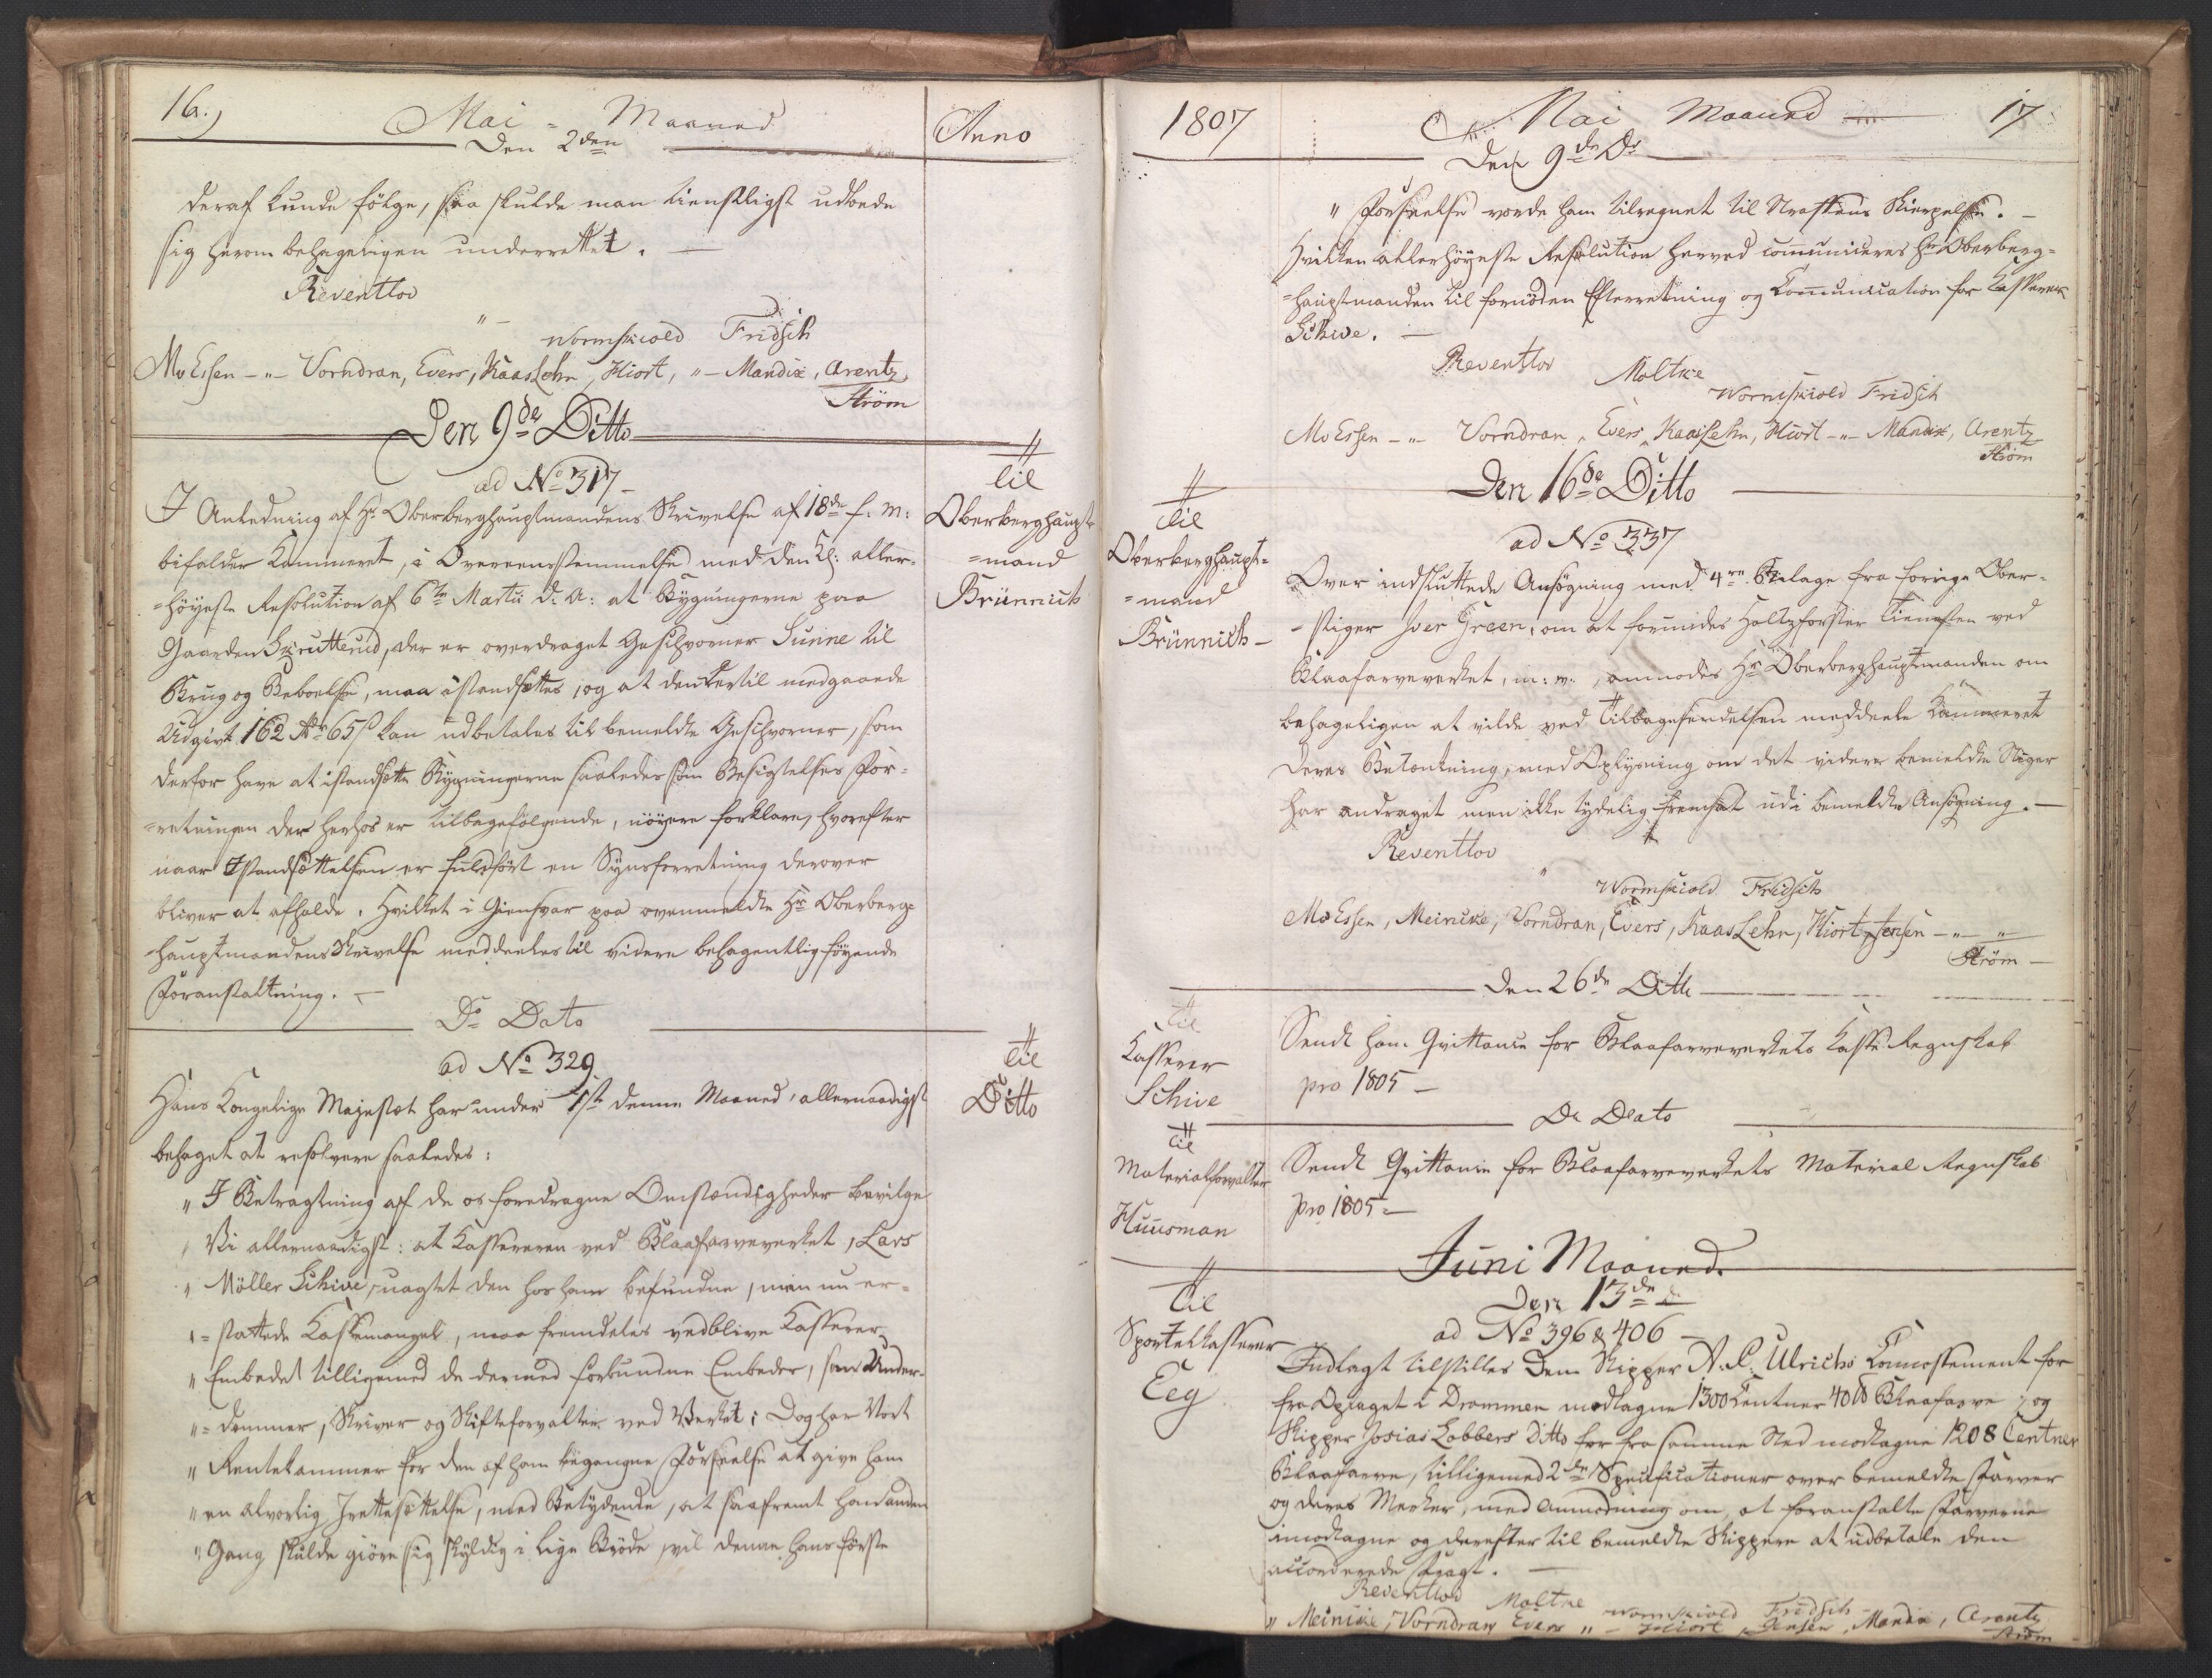 16.)
Mai = Maaned
Anno
Den 2den
deraf kunde følge, saa skulde man tienstligst udbede
sig herom behageligen underrettet. —
Reventlov
" —
Wormskiold Fridsch
MvEssen —"— Vorndran, Evers, KaasLehn, Hiort, "— Mandix, Arentz
Strøm
Den 9de Ditto
ad No 317
til
Oberberghaupt-
=mand
Brünnich
I Anledning af Hr Oberberghauptmandens Skrivelse af 18de f: M:
bifalder Kammeret, i Overeensstemmelse med den Kl: aller-
=høyeste Resolution af 6te Martii d: A: at Bygningerne paa
Gaarden Skrutterud, der er overdraget Geschvorner Sunne til
Brug og Beboelse, maa istandsættes, og at den dertil medgaaede
Udgivt 162 Rdr 65 s kan udbetales til bemeldte Geschvorner, som
derfor have at istandsætte Bygningerne saaledes som Besigtelses For-
=retningen der herhos er tilbagefølgende, nøyere forklare, hvorefter
naar Istandsættelsen er fuldført en Synsforretning derover
bliver at afholde. Hvilket i Giensvar paa ovenmeldte Hr Oberberg-
hauptmandens Skrivelse meddeeles til videre behagentlig føyende
Foranstaltning. —
Do Dato
ad No 329
til
Ditto
Hans Kongelige Majestæt har under 1ste denne Maaned, allernaadigst
behaget at resolvere saaledes:
" I Betragtning af de os foredragne Omstændigheder bevilge
" Vi allernaadigst: at Kassereren ved Blaafarveverket, Lars
" Møller Schive, uagtet den hos ham befundne, men nu er-
" = stattede Kassemangel, maa fremdeles vedblive Kasserer
" Embedet tilligemed de dermed forbundne Embeder, som Under-
" = dommer, Skriver og Skifteforvalter ved Verket; Dog har Vort
" Rentekammer for den af ham begangne Forseelse at give ham
" en alvorlig Irettesættelse, med Betydende, at saafremt han anden
" Gang skulde giøre sig skyldig i lige Brøde, vil denne hans første
1807
Mai Maaned
17
Den 9de Do
" Forseelse vorde ham tilregnet til Straffens Skierpelse. —
Hvilken allerhøyeste Resolution herved communiceres Hr Oberberg-
=hauptmanden til fornøden Efterretning og Communication for Kasserer
Schive. —
Reventlov
Moltke
Wormskiold Fridsch
MvEssen —"— Vorndran, Evers, KaasLehn, Hiort —"— Mandix, Arentz
Strøm
Den 16de Ditto
til
Oberberghaupt-
=mand
Brünnich —
ad No 337
Over indsluttede Ansøgning med 4re Bilage fra forrige Ober-
=stiger Iver Green, om at forundes Holtzforster Tienesten ved
Blaafarveverket, m: v:, anmodes Hr Oberberghauptmanden om
behageligen at vilde ved Tilbagesendelsen meddeele Kammeret
Deres Betænkning, med Oplysning om det videre bemeldte Stiger
har andraget men ikke tydelig fremsat udi bemeldte Ansøgning. —
Reventlov
"
Wormskiold Fridsch
MvEssen, Meincke, Vorndran, Evers, KaasLehn, Hiort, Jensen —"— "
Strøm —
Den 26de Ditto
til
Kasserer
Schive
Sendt ham Qvittance for Blaafarveverkets Kasse Regnskab
pro 1805 —
Do Dato
til
Materialforvalter
Huusman
Sendt Qvittance for Blaafarveverkets Material Regnskab
pro 1805 —
Juni Maaned.
Den 13de
til
Sportelkasserer
Eeg
ad No 396 & 406 —
Indlagt tilstilles Dem Skipper N. P. Ulrichs Connossement for
fra Oplaget i Drammen modtagne 1300 Centner 40 ℔ Blaafarve, og
Skipper Josias Lobbers Ditto for fra samme Sted modtagne 1208 Centner
Blaafarve, tilligemed 2de Specificationer over bemeldte Farver
og deres Merker, med Anmodning om, at foranstalte Farverne
imodtagne og derefter til bemeldte Skippere at udbetale den
accorderede Fragt. —
Reventlov Moltke Wormskiold Fridsch
" Meincke, Vorndran, Evers " — Hiort, Jensen, Mandix, Arentz
Strøm